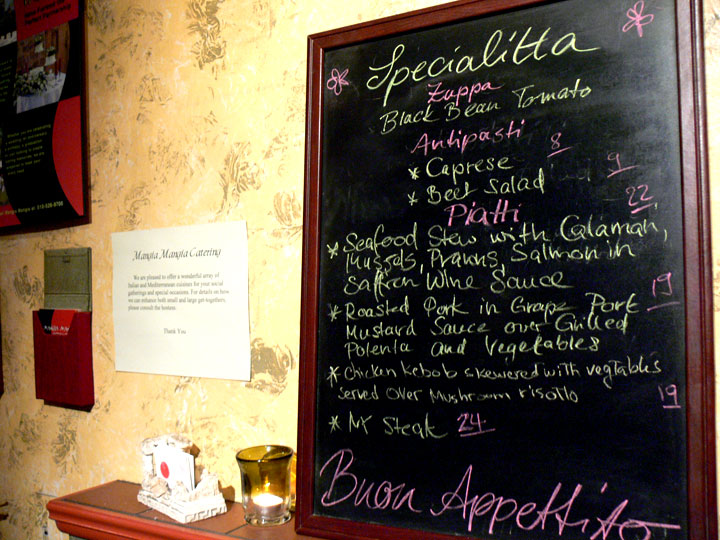 Specialitta
Zuppa
Black Bean Tomato
Antipasti
* Caprese 8
* Beet Salad 9
Piatti 22
* Seafood Stew with Calamari,
Mussels, Prawns, Salmon in
Saffron Wine Sauce
* Roasted Pork in Grape Port 19
Mustard Sauce over Grilled
Polenta and Vegetables
* Chicken Kebob skewered with vegtables
served over Mushroom risotto 19
* NY Steak 24
Buon Appettito
Mangia Mangia Catering
We are pleased to offer a wonderful array of
Italian and Mediterranean cuisines for your social
gatherings and special occasions. For details on how
we can enhance both small and large get-togethers,
please consult the hostess.
Thank You